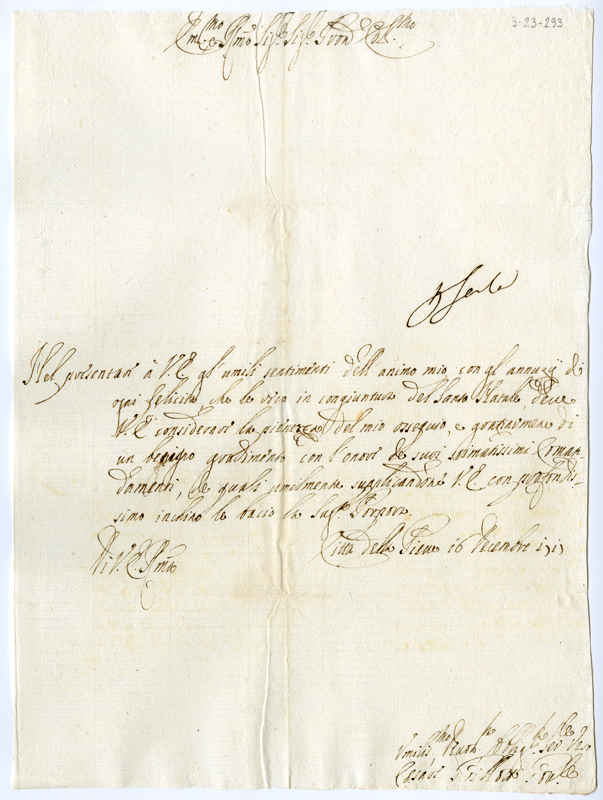 3-23-293
Em.mo e Rmo Sig.e Sig.e Pron Col.mo
Nel presentare à V.E. gl'umili sentimenti dell'animo mio con gl'annuzij di
ogni felicità, che le reco in congiuntura del Santo Natale, deve
V.E. considerare la pienezza del mio ossequio, e gratiarmene di
un benigno gradimento con l'onore de suoi stimatissimi Coman-
damenti, de quali umilmente supplicandone V.E. con profondis-
simo inchino le bacio la Sag.a Porpora.
Di V.E. Rma
Città della Pieve 16 Decembre 1717
Umilis.mo Devot.mo Obblig.mo Ser.re
Cesare